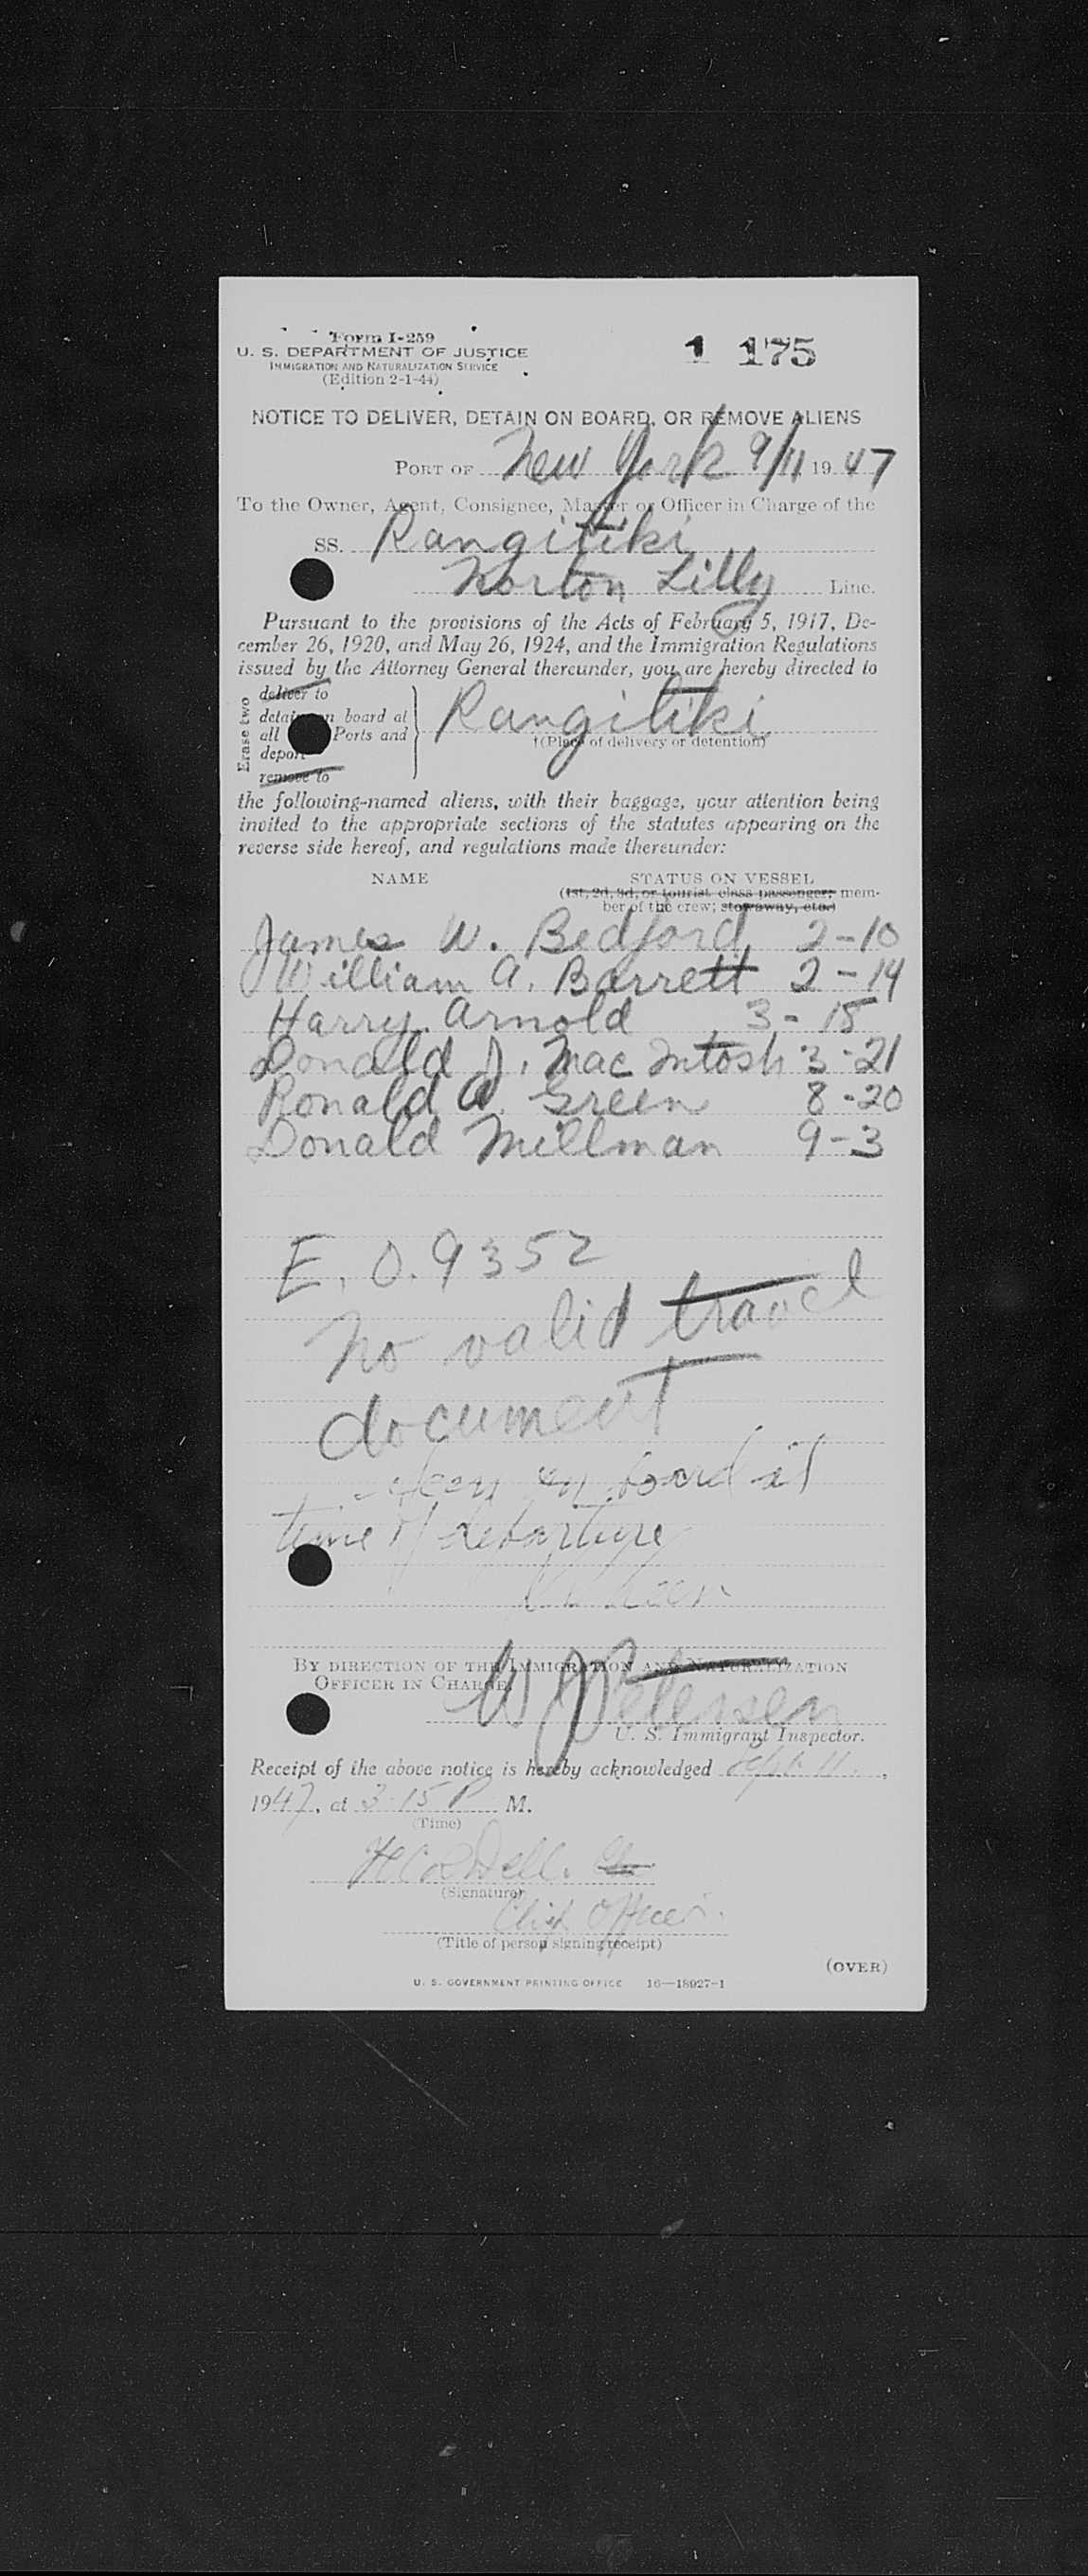 Form I-259
U. S. DEPARTMENT OF JUSTICE
IMMIGRATION AND NATURALIZATION SERVICE
(Edition 2-1-44)
1 175
NOTICE TO DELIVER, DETAIN ON BOARD, OR REMOVE ALIENS
PORT OF New York 9/11 1947
To the Owner, Agent, Consignee, Master or Officer in Charge of the
SS. Rangitiki
Norton Lilly Line.
Pursuant to the provisions of the Acts of February 5, 1917, De-
cember 26, 1920, and May 26, 1924, and the Immigration Regulations
issued by the Attorney General thereunder, you are hereby directed to
Erase two
deliver to
detain on board at
all Ports and
deport
remove to
Rangitiki
†(Place of delivery or detention)
the following-named aliens, with their baggage, your attention being
invited to the appropriate sections of the statutes appearing on the
reverse side hereof, and regulations made thereunder:
NAME STATUS ON VESSEL
(1st, 2d, 3d, or tourist class passenger; mem-
ber of the crew; stowaway, etc.)
James W. Bedford 2-10
William A. Barrett 2-14
Harry Arnold 3-18
Donald J. MacIntosh 3-21
Ronald A. Green 8-20
Donald Millman 9-3
E. O. 9352
No valid travel
document
seen on board at
time of departure
BY DIRECTION OF THE IMMIGRATION AND NATURALIZATION
OFFICER IN CHARGE,
W J Petersen
U. S. Immigrant Inspector.
Receipt of the above notice is hereby acknowledged Sept. 11,
1947, at 3 15 P M.
(Time)
(Signature)
Chief Officer.
(Title of person signing receipt)
(OVER)
U. S. GOVERNMENT PRINTING OFFICE 16—18027-1